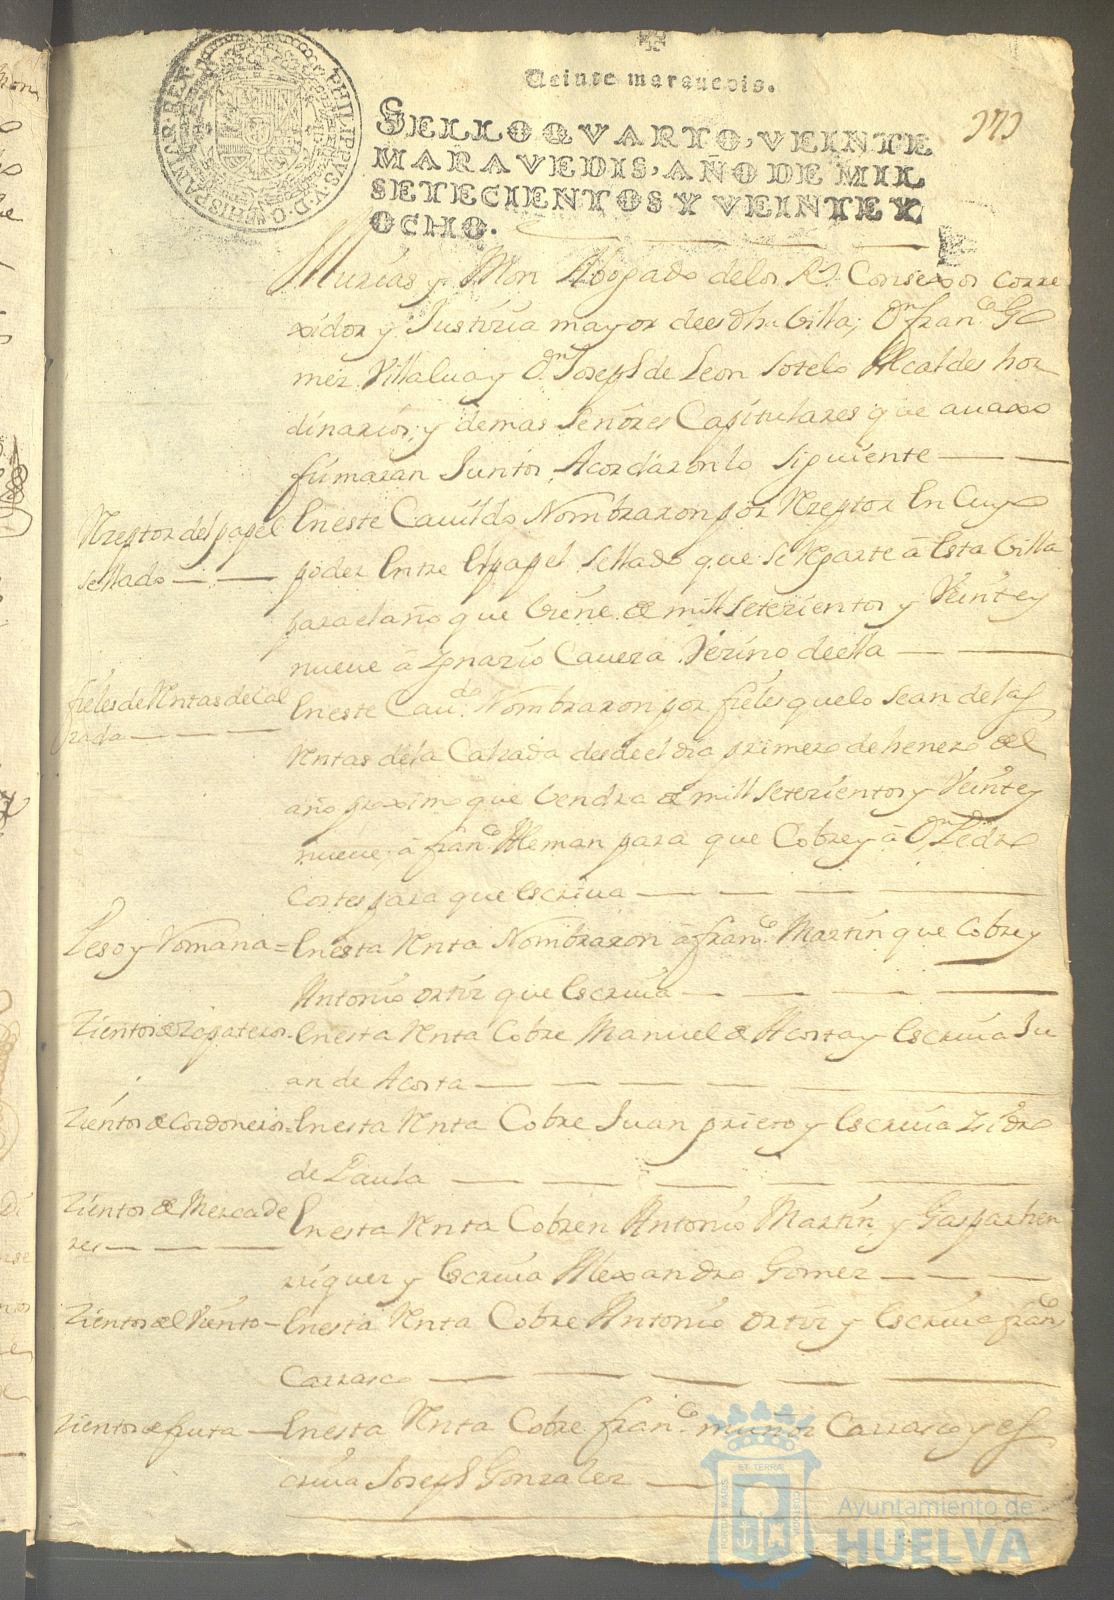 Veinte maravedis.
SELLO QVARTO, VEINTE
MARAVEDIS, AÑO DE MIL
SETECIENTOS Y VEINTE Y
OCHO.
PHILIPPVS V D G HISPANIAR REX
Murias y Mon Abogado delos Rs. Consexos corre
xidor y Justicia mayor deesta Villa; Dn. franco. Go
mez Villalua y Dn. Joseph de Leon Sotelo Alcaldes hor
dinarios; y demas Señores Capitulares que auaxo
firmaran Juntos Acordaron lo siguiente
Rzeptor del papel
sellado
En este Cauildo Nombraron por Rzeptor En Cuyo
poder Entre El papel Sellado que Se Reparte â Esta Villa
para el año que Viene de mill Setezientos y Veinte y
nueue â Ygnazio Cauera Vezino deella
fieles de Rentas de la Cal
zada
En este Caudo. Nombraron por fieles que lo sean de las
Rentas dela Calzada desde el dia primero de henero del
año proximo que Vendra de mill Setezientos y Veinte y
nueue; â franco. Aleman para que Cobre y â Dn. Pedro
Cortes para que Escriua
Peso y Romana =
En esta Renta Nombraron â franco. Martin que Cobre y
Antonio Ortiz que Escriua
Zientos de Zapateros.
En esta Renta Cobre Manuel de Acosta y Escriua Ju
an de Acosta
Zientos de Cordoneros =
En esta Renta Cobre Juan prieto y Escriua Ysidro
de Paula
Zientos de Mercade
res
En esta Renta Cobren Antonio Martin y Gaspar hen
riquez y Escriua Alexandro Gomez
Zientos del Viento
En esta Renta Cobre Antonio Ortiz y Escriua franco.
Carrasco
Zientos de fruta
En esta Renta Cobre franco. muñoz Carrasco y es
criua Joseph Gonzalez
Ayuntamiento de
HUELVA